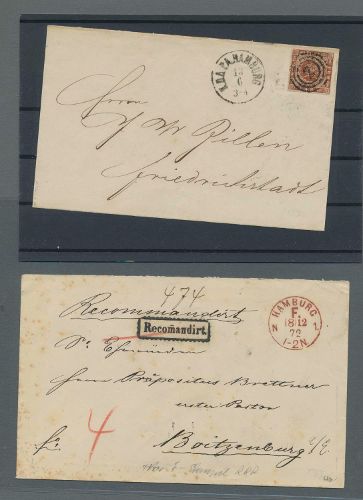 K.D.O.P.A. HAMBURG
13
6
3-4
Herrn
J W Zillen
Friedrichstadt
474
Recommandirt
Recomandirt.
HAMBURG
F.
N 1.
18 12
72
1-2N
Sr Ehrwürden
Herrn Präpositus Brettner
erster Pastor
fr. 4
Boitzenburg a/E.